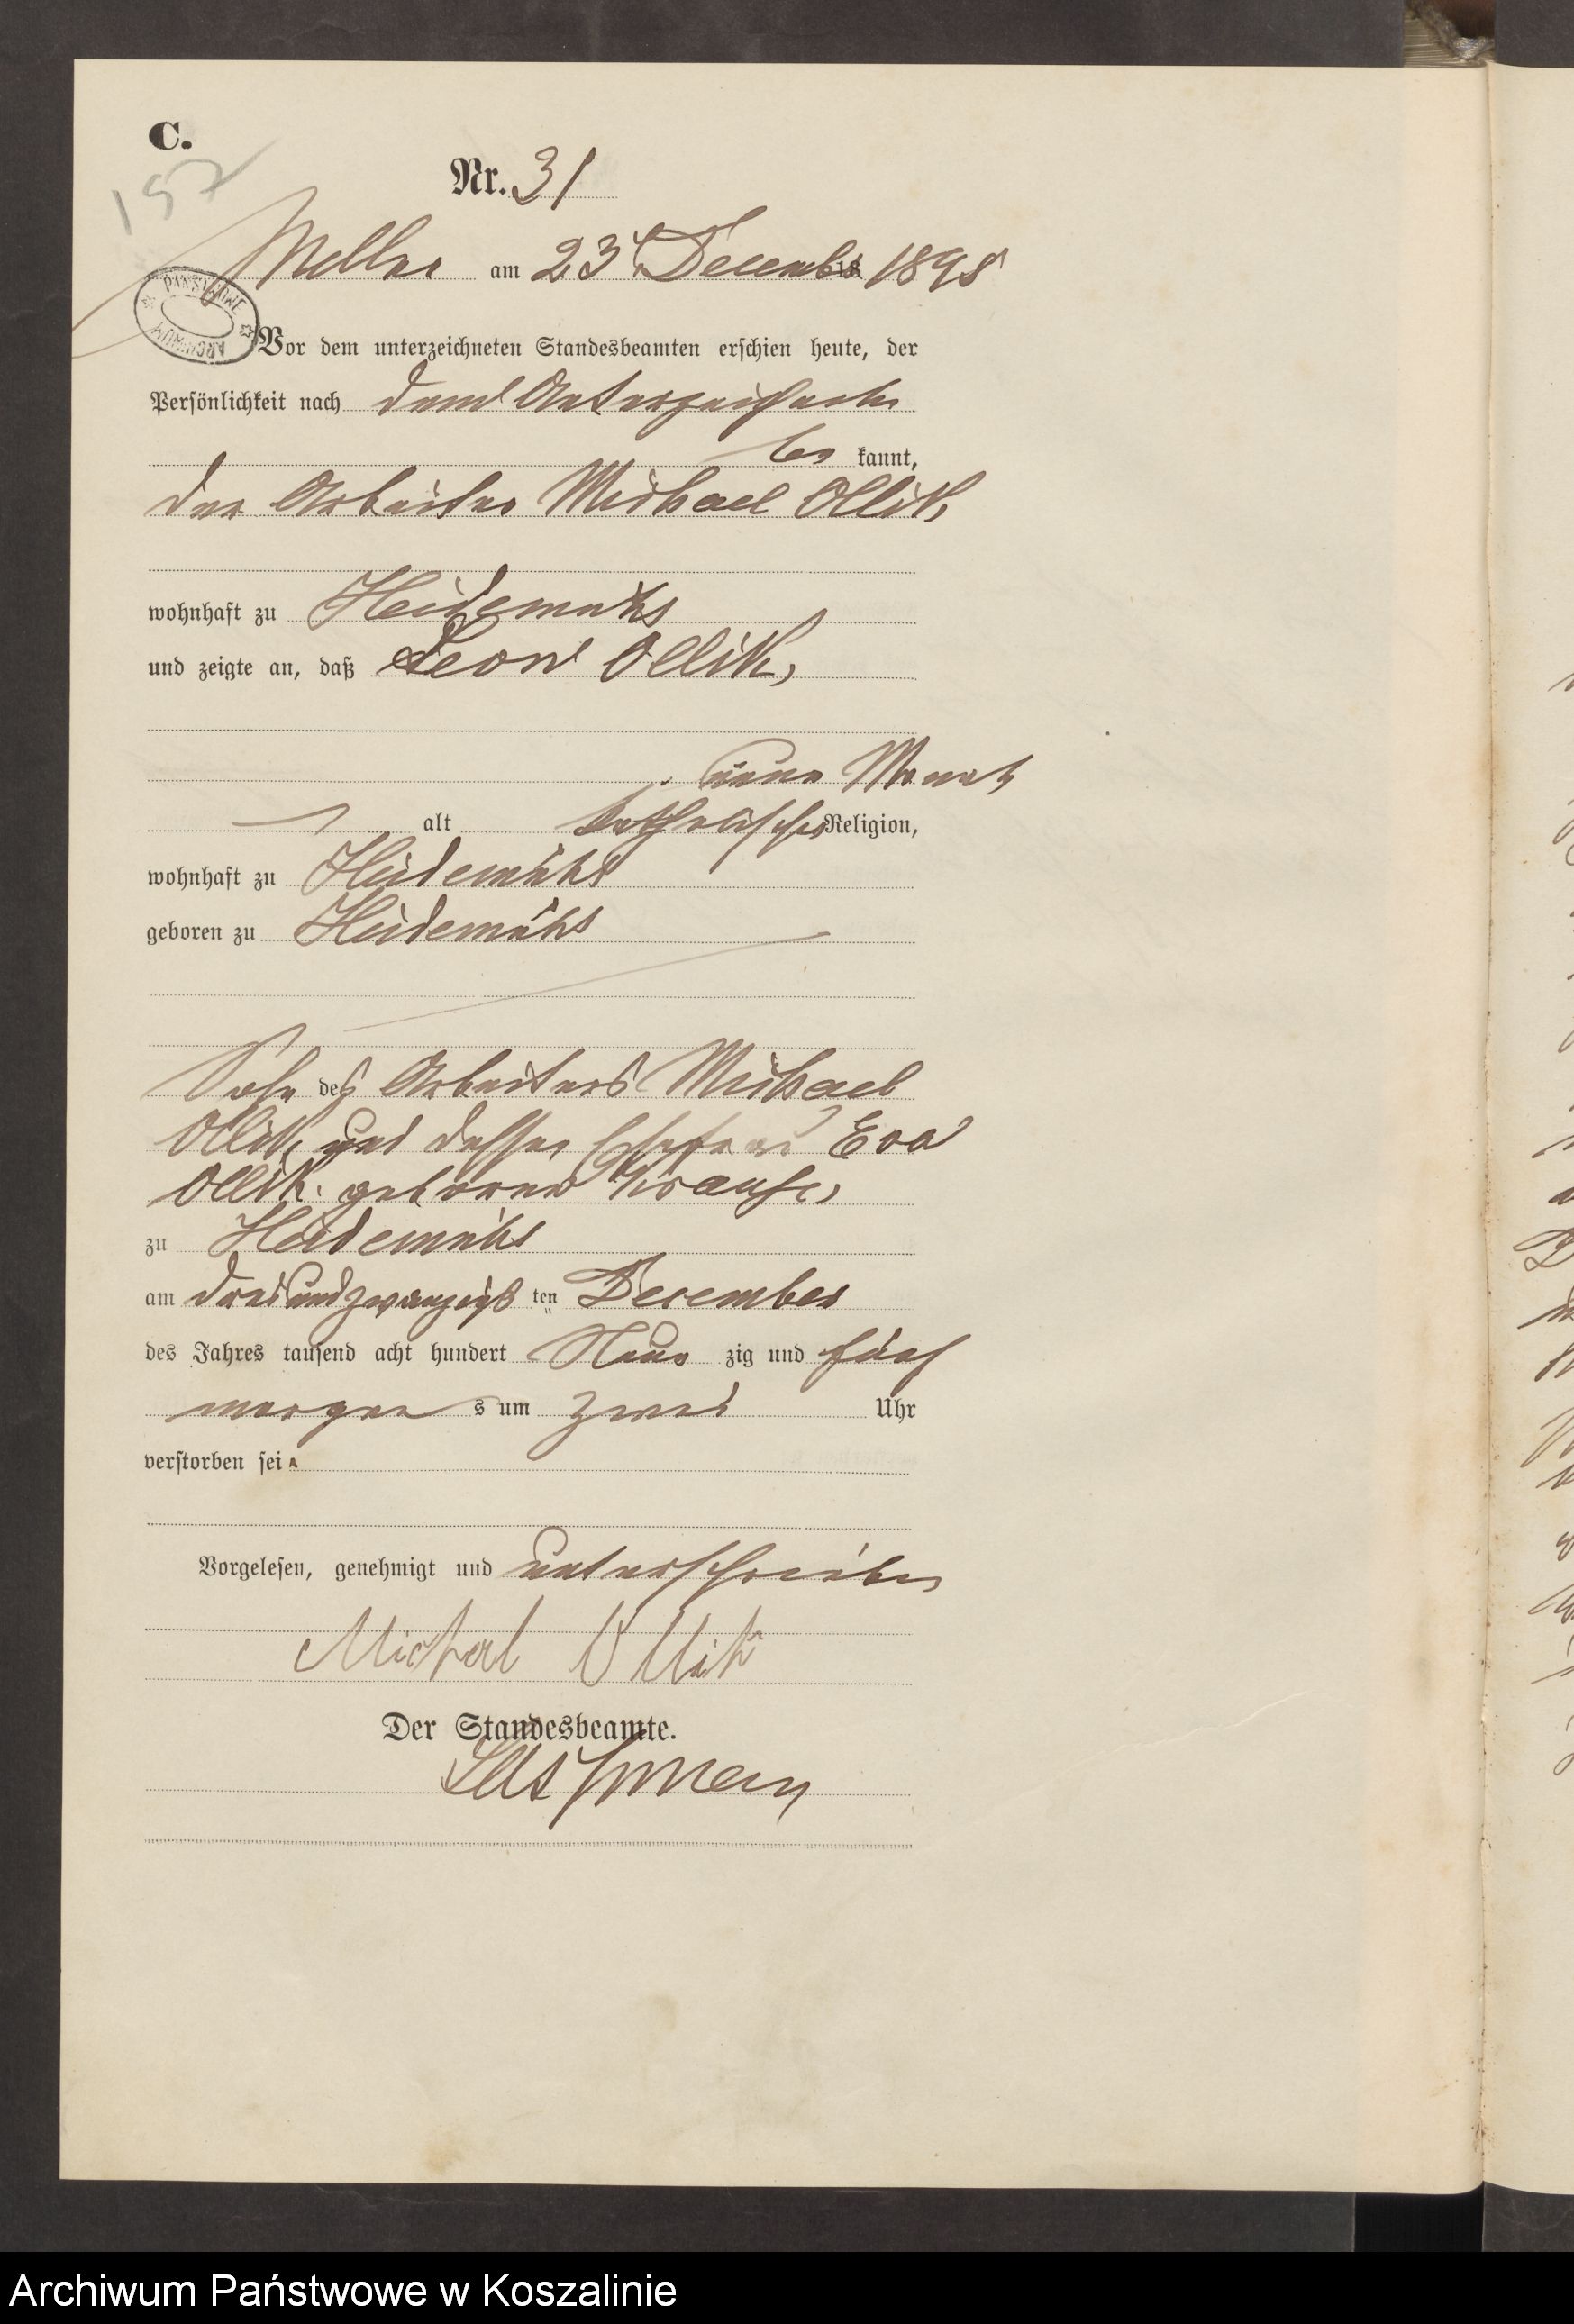 C.
157
Nr. 31
am 23 Decemb 1895
PAŃSTWOWE ARCHIWUM
Vor dem unterzeichneten Standesbeamten erschien heute, der
Persönlichkeit nach dem Unterzeichneten
be kannt,
der Arbeiter Michael Ollik,
wohnhaft zu Heidemühl
und zeigte an, daß Leon Ollik,
neun Monate
alt katholischer Religion,
wohnhaft zu Heidemühl
geboren zu Heidemühl
Sohn des Arbeiters Michael
Ollik und dessen Ehefrau Eva
Ollik geborene Krause,
zu Heidemühl
am dreiundzwanzigs ten December
des Jahres tausend acht hundert Neun zig und fünf
morgen s um zwei Uhr
verstorben sei
Vorgelesen, genehmigt und unterschrieben
Michael Ollik
Der Standesbeamte.
Archiwum Państwowe w Koszalinie